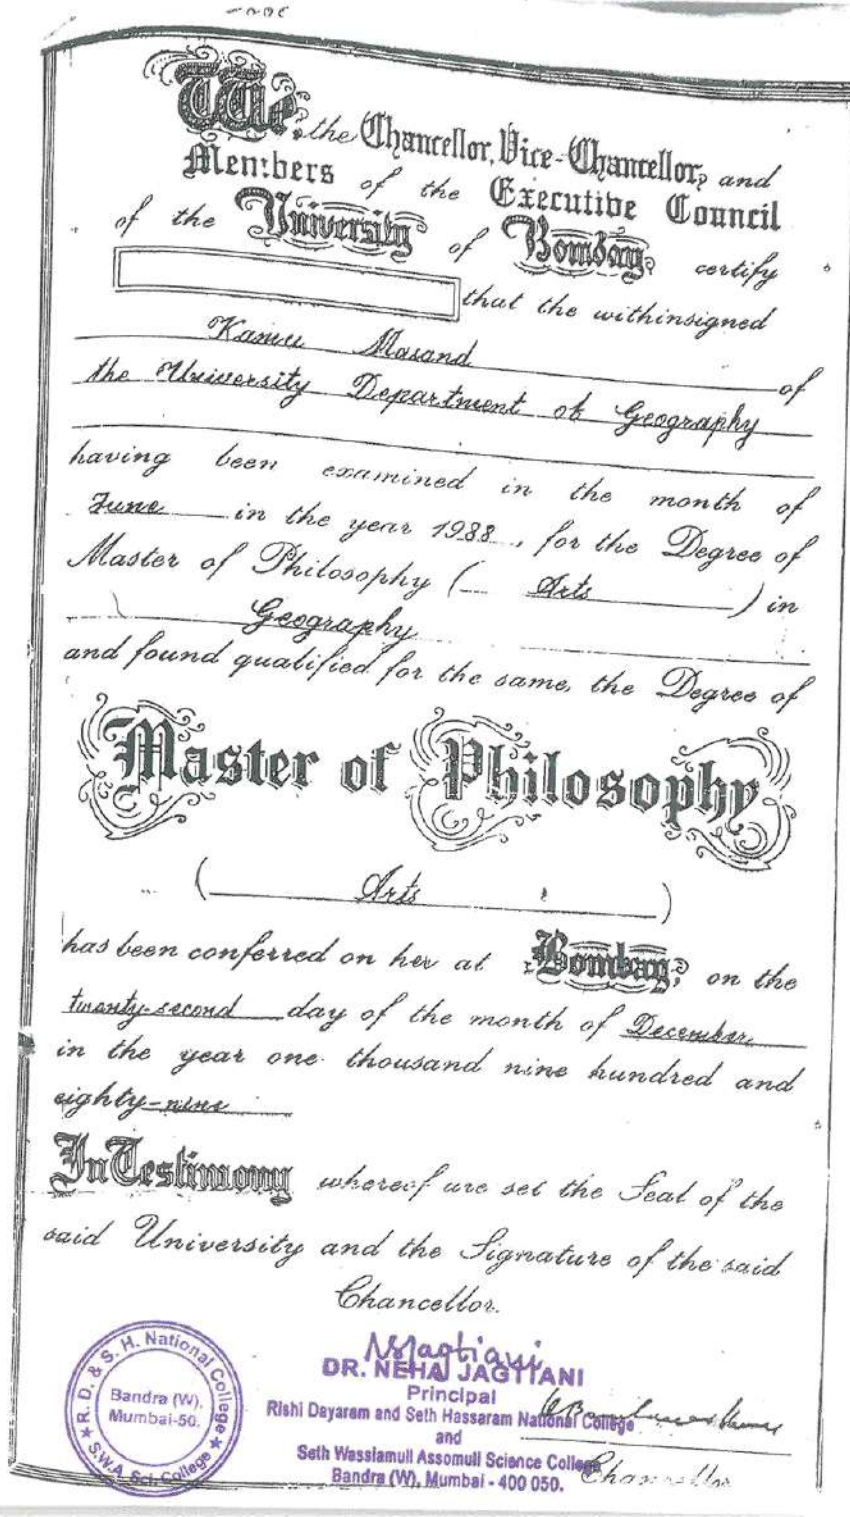 We, the Chancellor, Vice-Chancellor, and
Members of the Executive Council
of the University of Bombay, certify
that the withinsigned
Kamu Masand of
the University Department of Geography
having been examined in the month of
June in the year 1988, for the Degree of
Master of Philosophy ( Arts ) in
Geography
and found qualified for the same, the Degree of
Master of Philosophy
( Arts )
has been conferred on her at Bombay, on the
twenty-second day of the month of December
in the year one thousand nine hundred and
eighty-nine
In Testimony whereof are set the Seal of the
said University and the Signature of the said
Chancellor.
R. D. & S. H. National College
S.W.A. Sci. College
Bandra (W),
Mumbai-50.
DR. NEHA JAGTIANI
Principal
Rishi Dayaram and Seth Hassaram National College
and
Seth Wassiamull Assomull Science College
Bandra (W), Mumbai - 400 050.
Chancellor